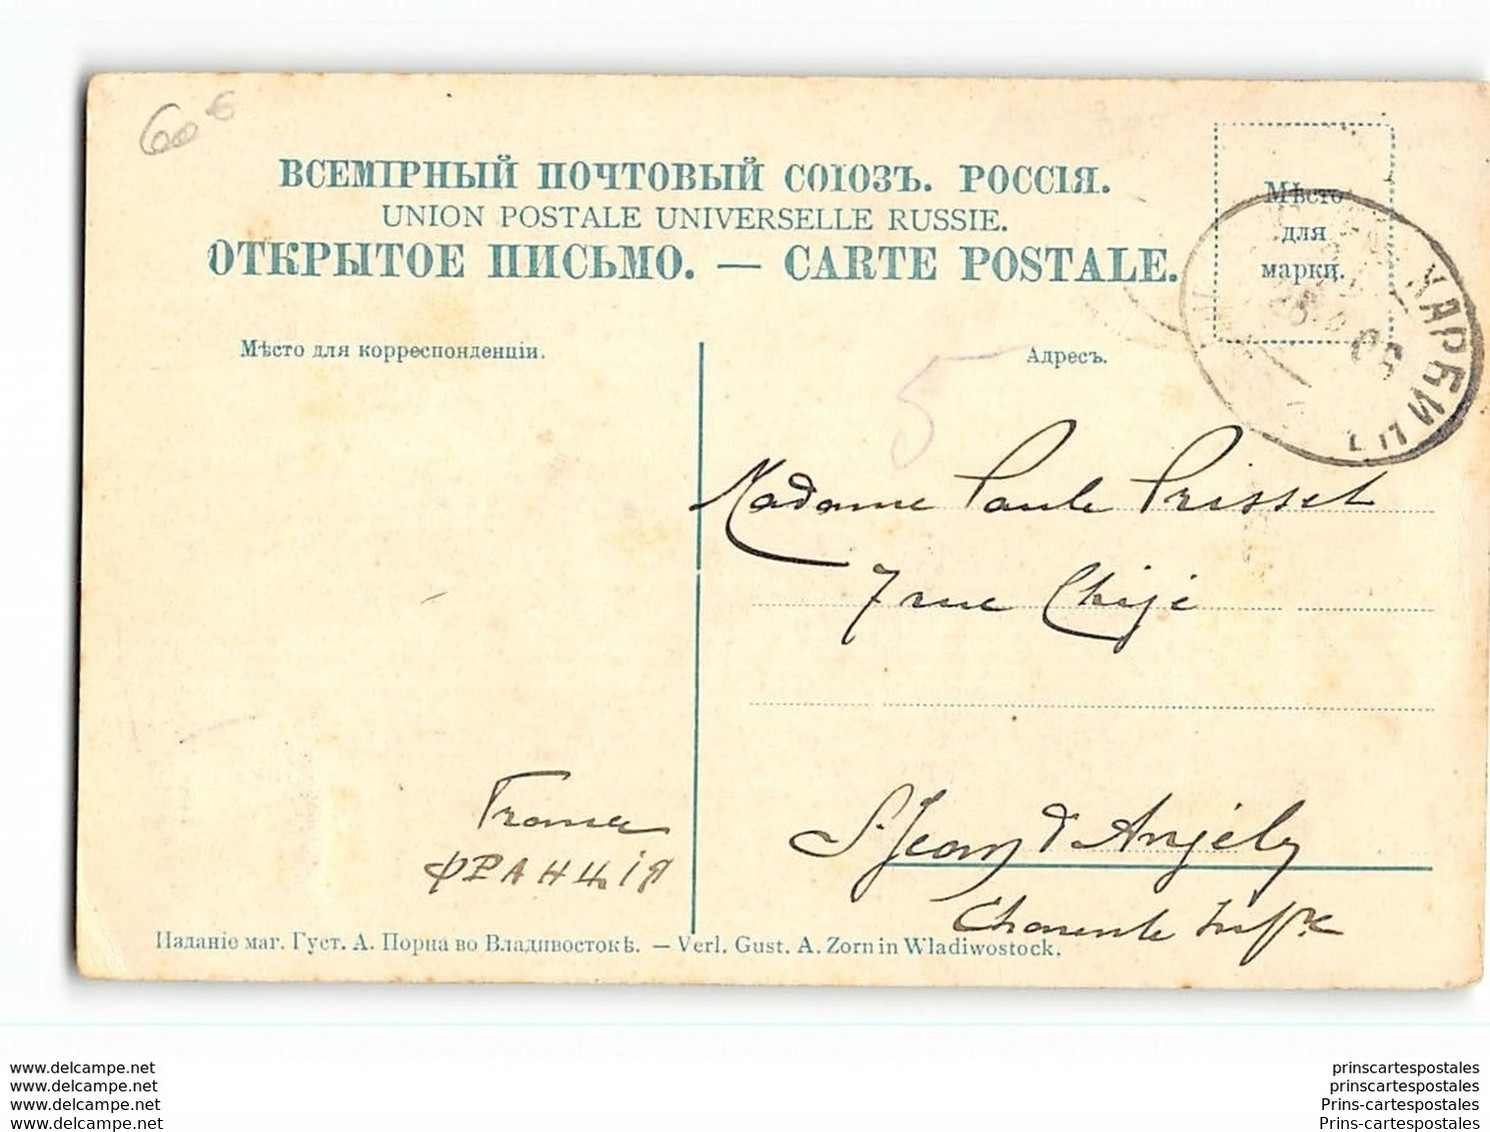 60 €
ВСЕМІРНЫЙ ПОЧТОВЫЙ СОЮЗЪ. РОССІЯ.
UNION POSTALE UNIVERSELLE RUSSIE.
ОТКРЫТОЕ ПИСЬМО. — CARTE POSTALE.
Мѣсто
для
марки.
ХАРБИН
Мѣсто для корреспонденціи.
Адресъ.
5
Madame Paule Prisset
7 rue
St Jean d'Angély
Charente Infre
France
ФРАНЦІЯ
Изданіе маг. Густ. А. Цорна во Владивостокѣ. — Verl. Gust. A. Zorn in Wladiwostock.
www.delcampe.net
www.delcampe.net
www.delcampe.net
www.delcampe.net
prinscartespostales
prinscartespostales
Prins-cartespostales
Prins-cartespostales